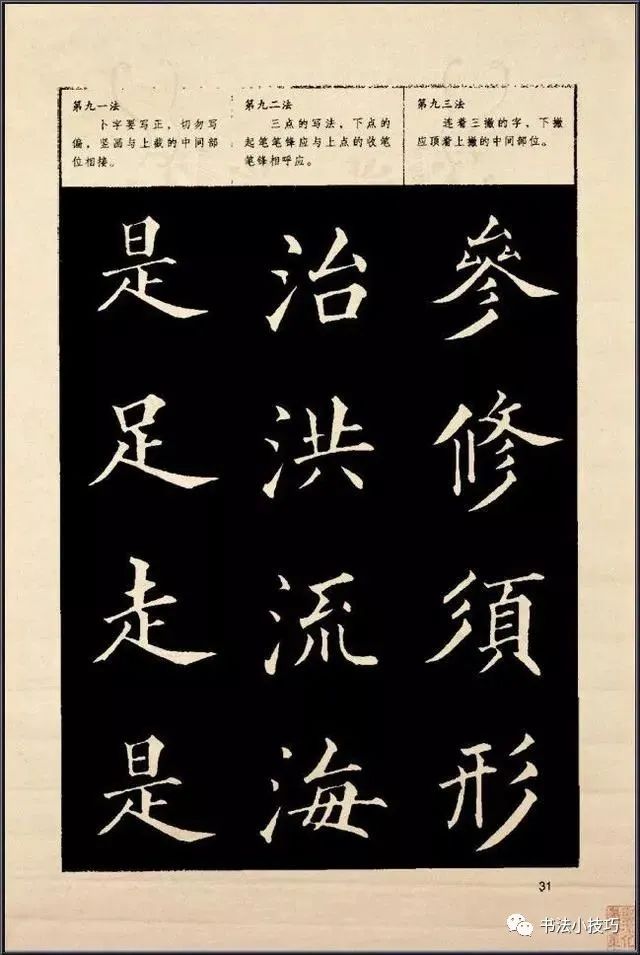 第九一法
卜字要写正，切勿写
偏，竖画与上截的中间部
位相接。
第九二法
三点的写法，下点的
起笔笔锋应与上点的收笔
笔锋相呼应。
第九三法
连着三撇的字，下撇
应顶着上撇的中间部位。
是 治 參
足 洪 修
走 流 須
是 海 形
31
书法小技巧